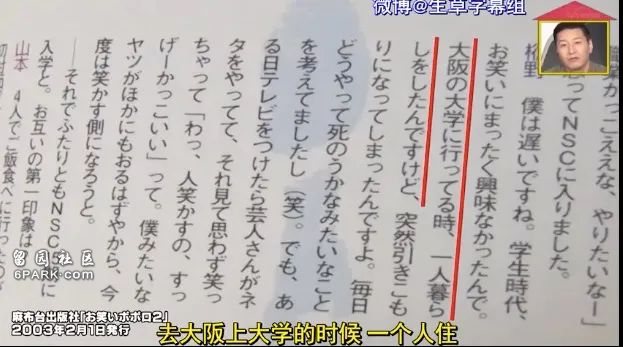 微博@生草字幕组
かっこええな、やりたいなー」
思ってNSCに入りました。
僕は遅いですね。学生時代、
お笑いにまったく興味なかったんで。
大阪の大学に行ってる時、一人暮ら
しをしたんですけど、突然引きこも
りになってしまったんですよ。毎日
どうやって死のうかなみたいなこと
を考えてましたし（笑）。でも、あ
る日テレビをつけたら芸人さんがネ
タをやってて、それ見て思わず笑っ
ちゃって「わっ、人笑かすの、すっ
げーかっこいい」って。僕みたいな
ヤツがほかにもおるはずやから、今
度は笑かす側になろうと。
――それでふたりともNSC
入学と。お互いの第一印象は
山本　4人でご飯食べに行った
留园社区
6PARK.COM
麻布台出版社「お笑いポポロ2」
2003年2月1日発行
去大阪上大学的时候 一个人住